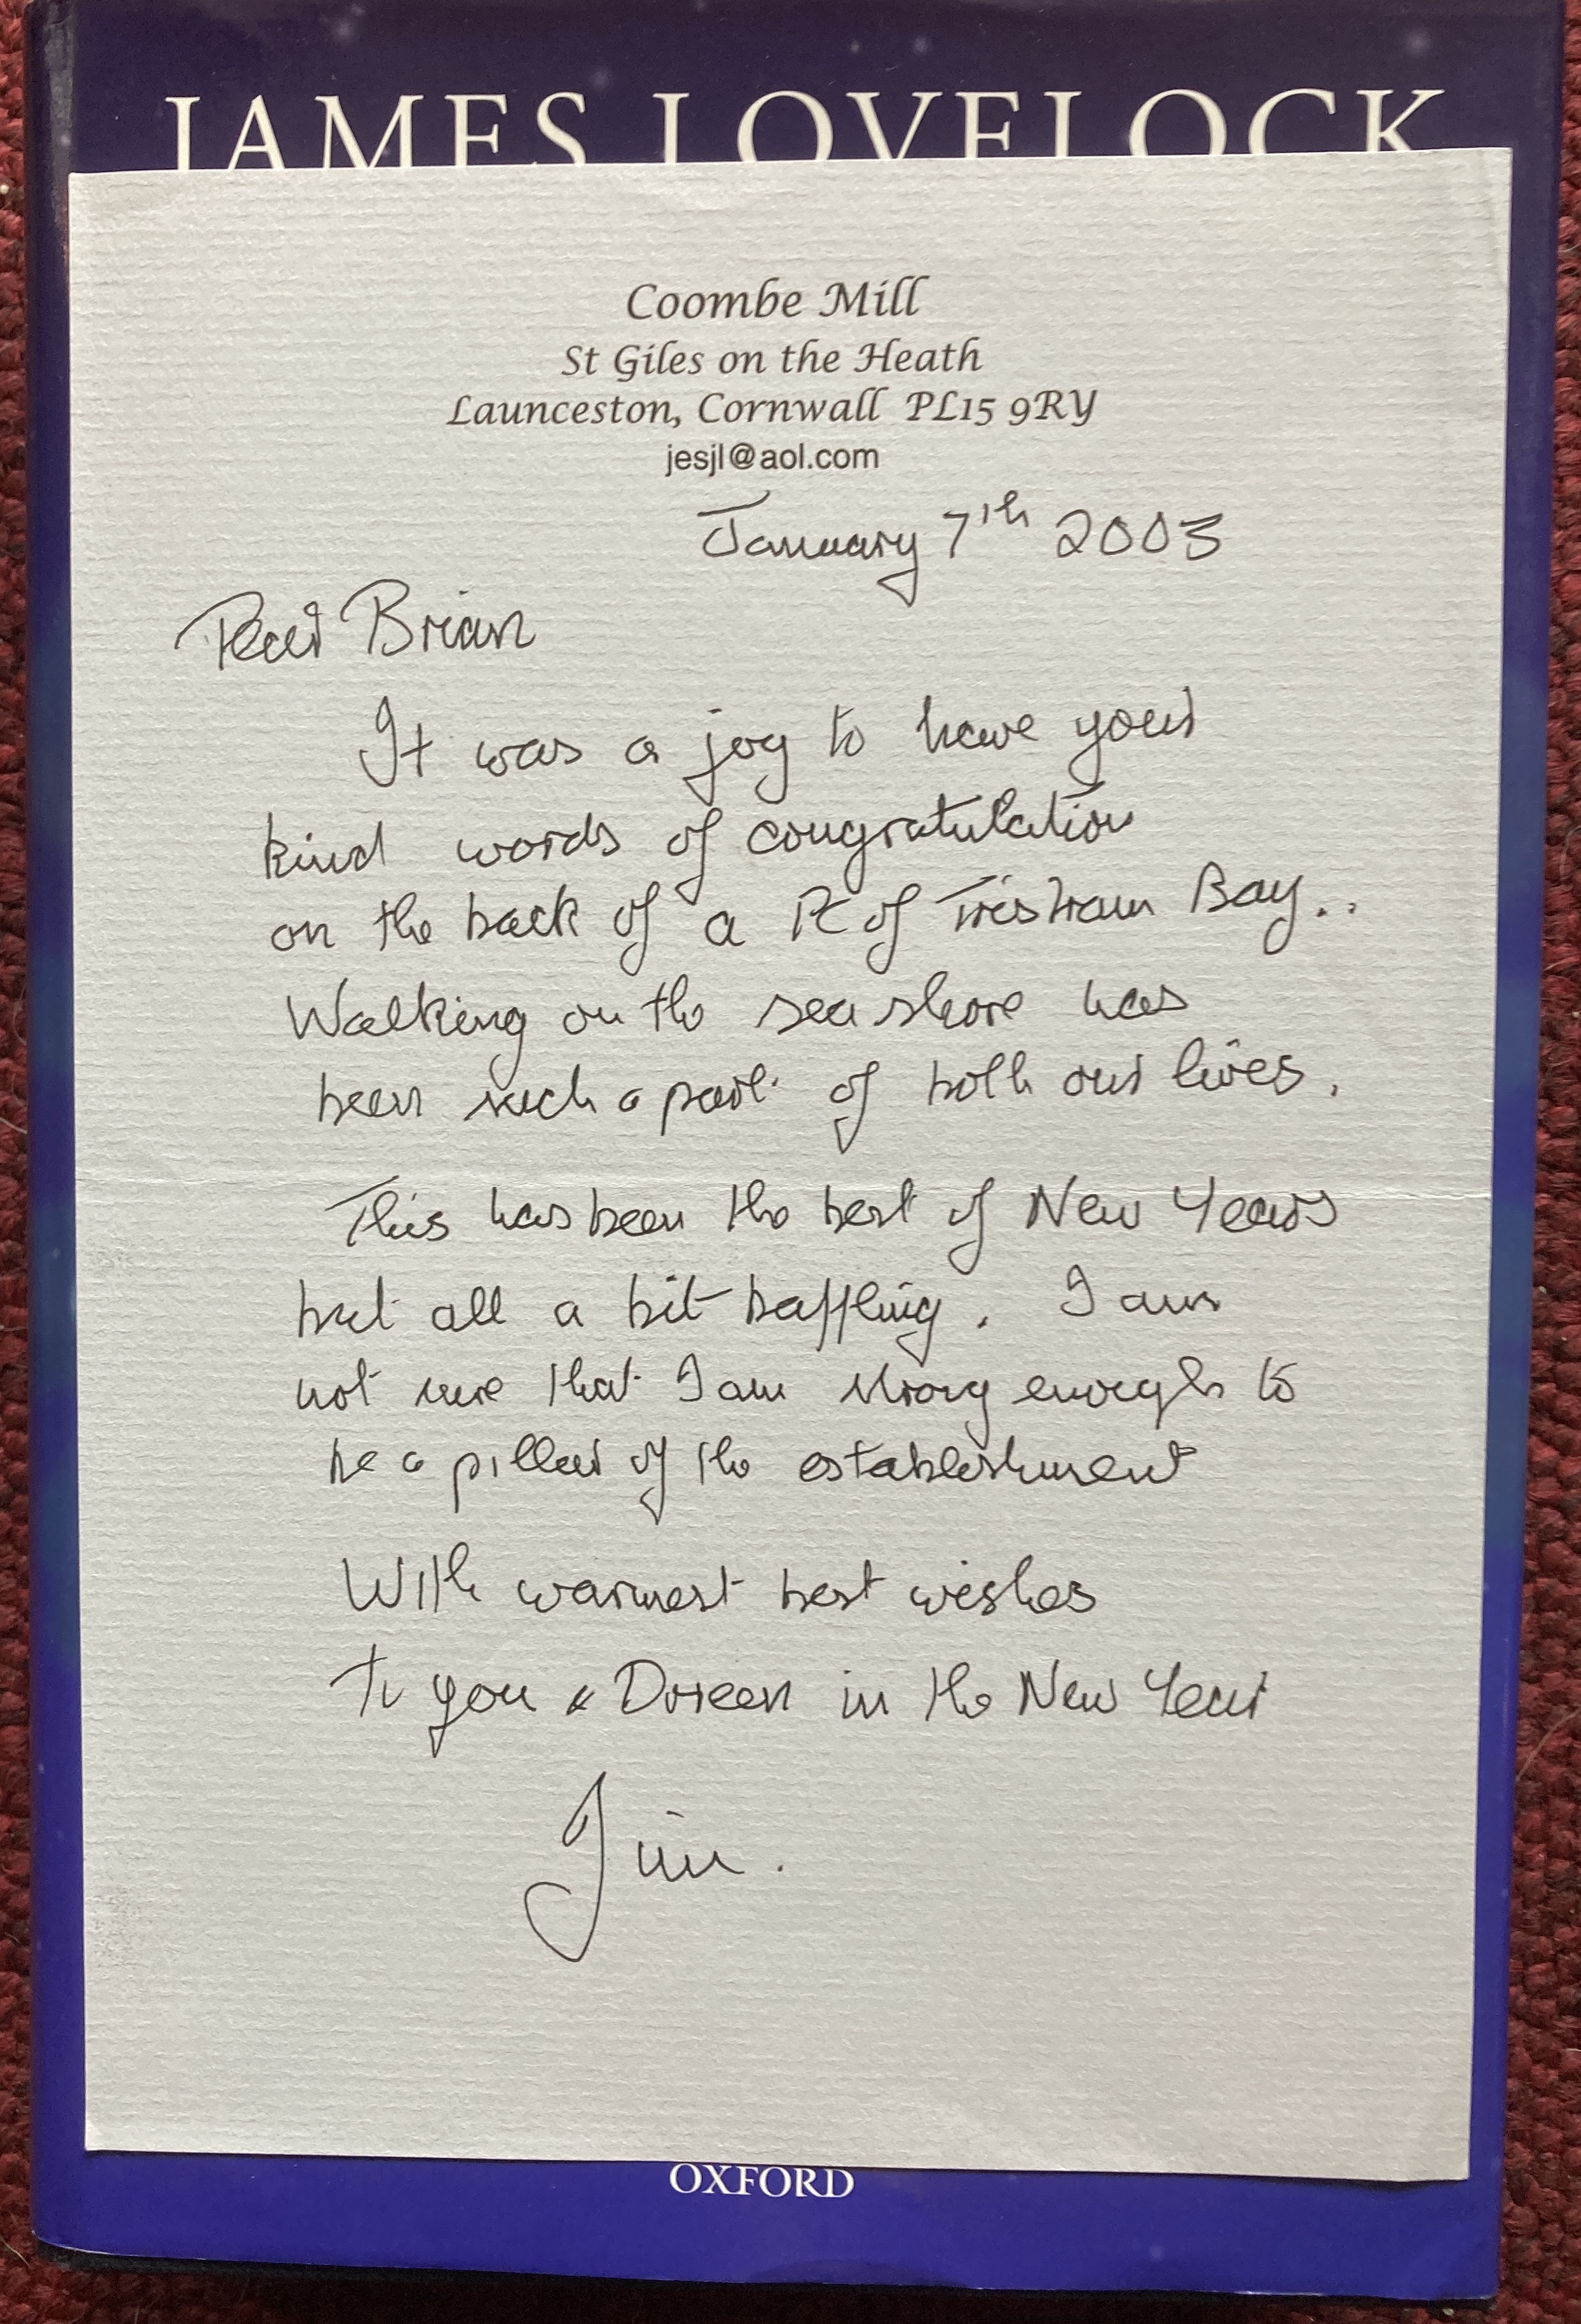 JAMES LOVELOCK
Coombe Mill
St Giles on the Heath
Launceston, Cornwall PL15 9RY
jesjl@aol.com
January 7th 2003
Dear Brian
It was a joy to have your
kind words of congratulation
on the back of a PC of Tristram Bay..
Walking on the sea shore has
been such a part of both our lives.
This has been the best of New Years
but all a bit baffling. I am
not sure that I am strong enough to
be a pillar of the establishment
With warmest best wishes
To you & Doreen in the New Year
Jim.
OXFORD